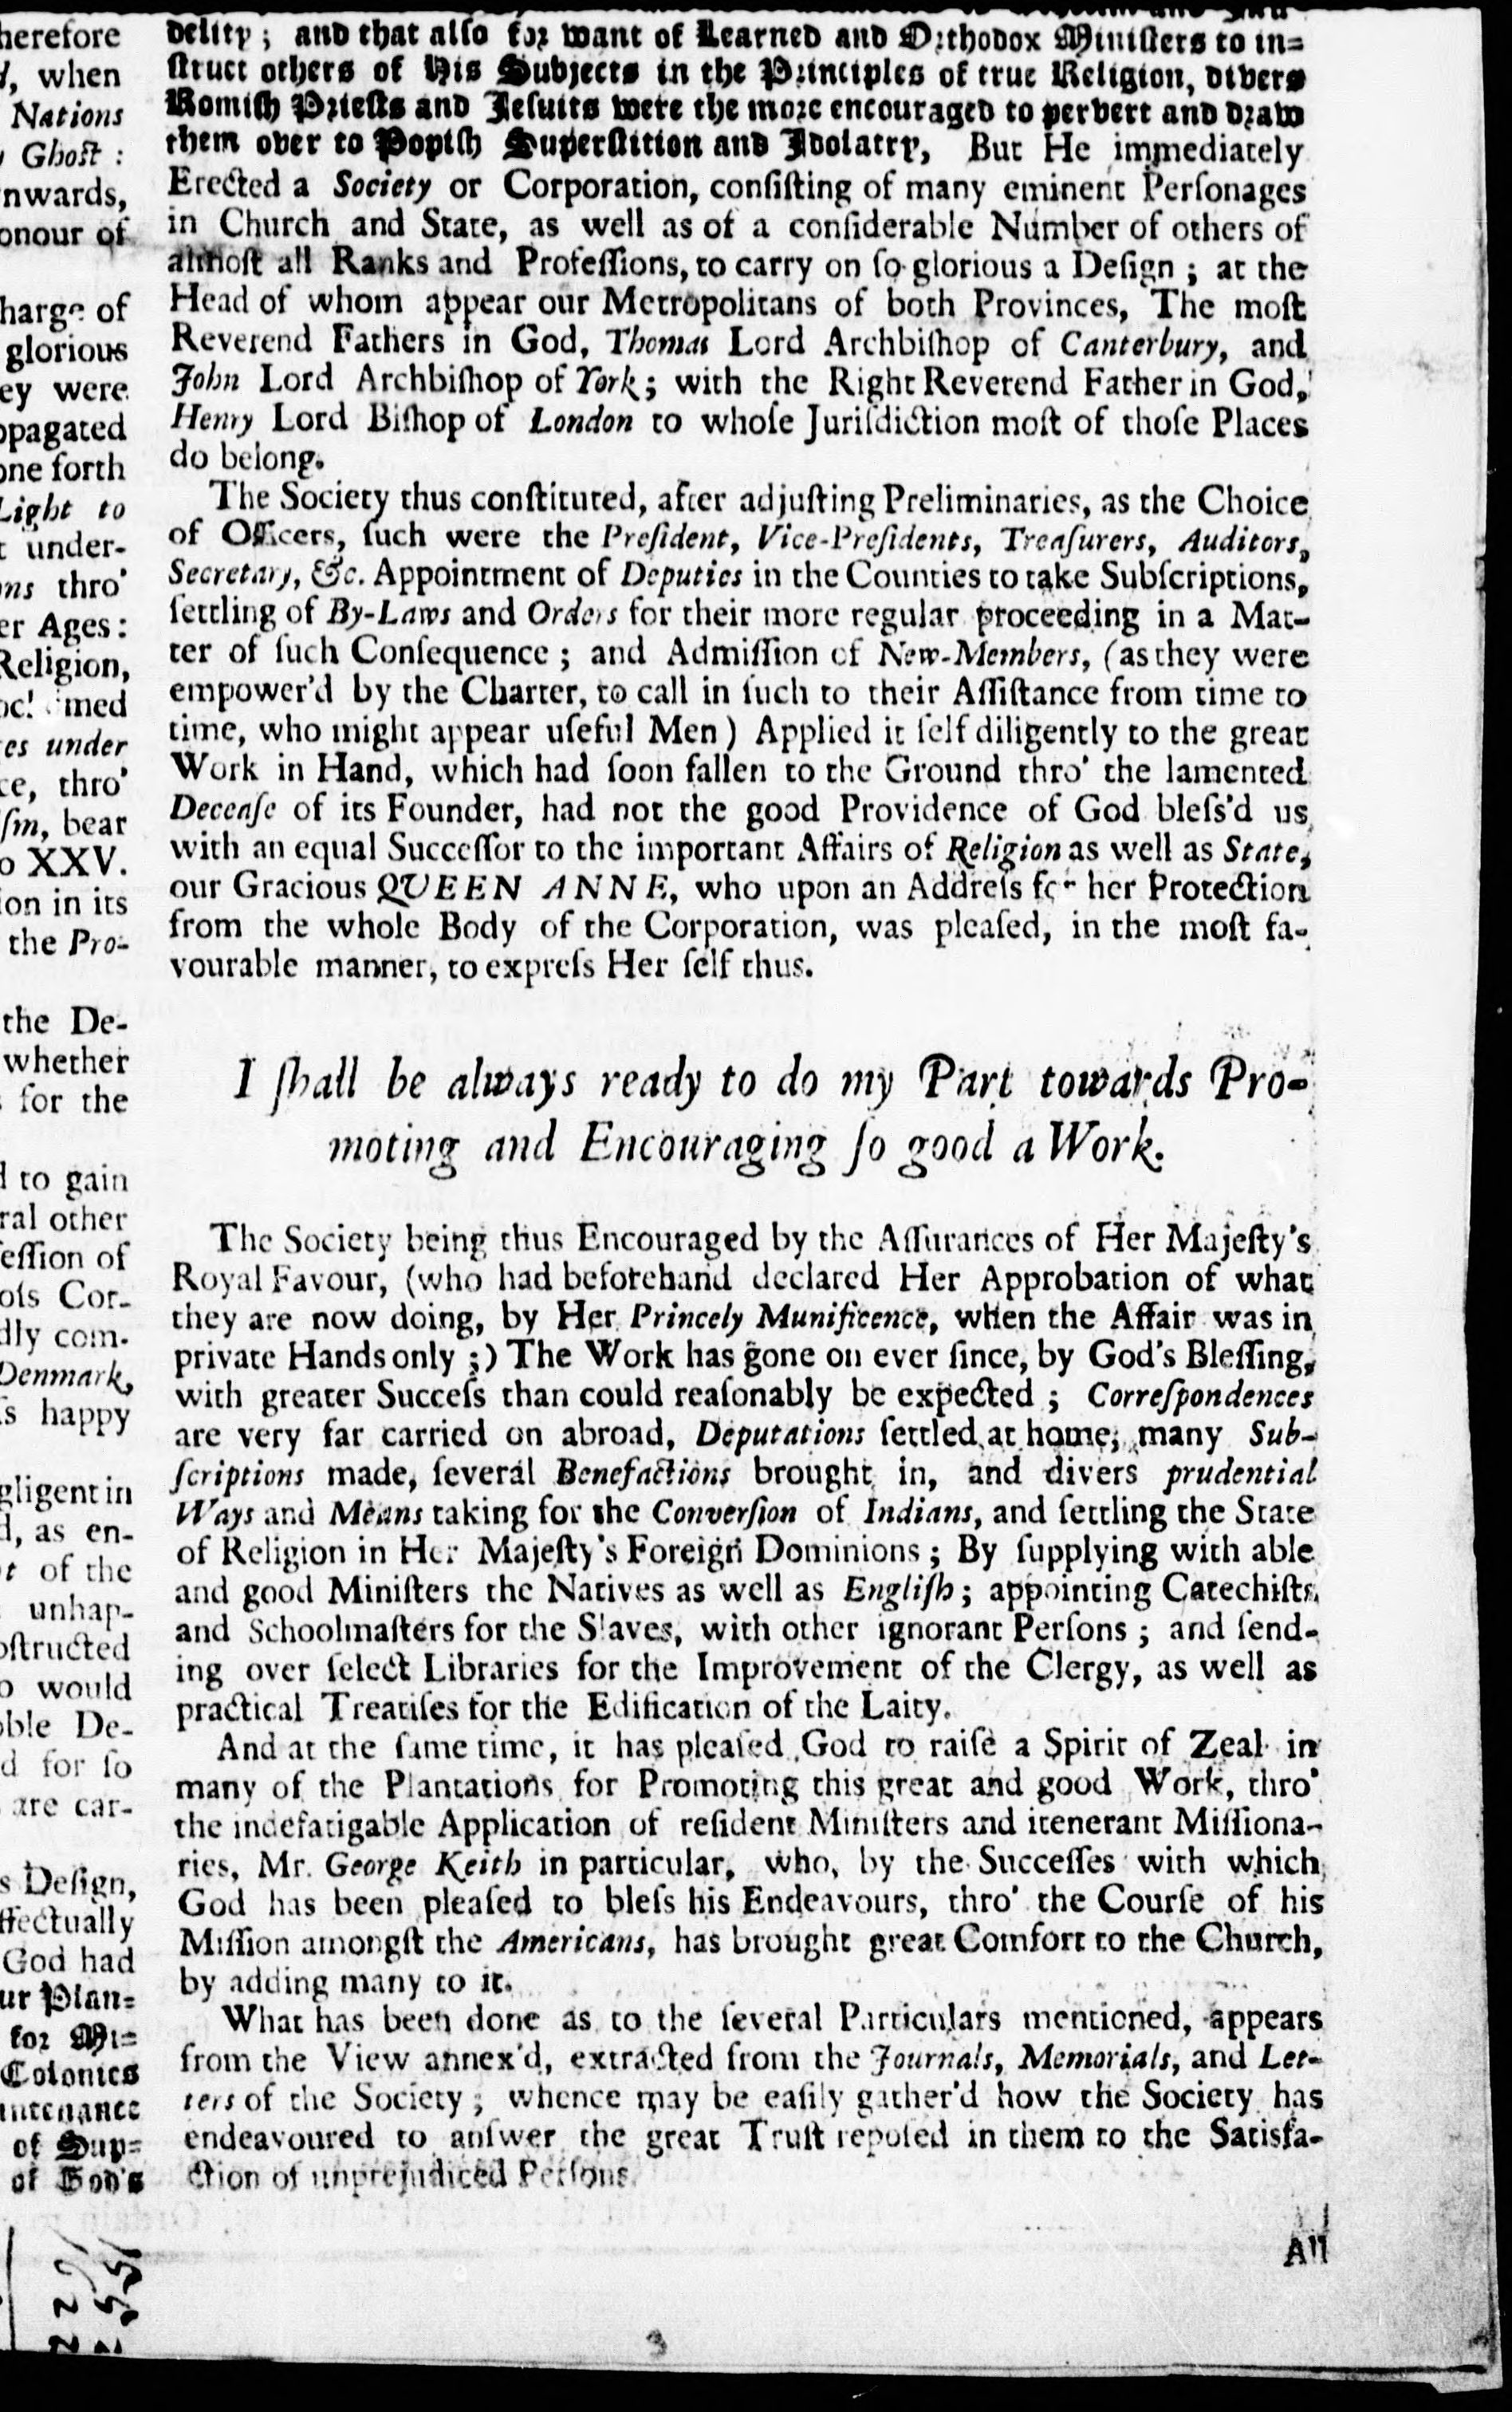 herefore
, when
Nations
Ghost :
nwards,
onour of
harge of
glorious
ey were
opagated
one forth
Light to
under-
ns thro'
er Ages :
Religion,
es under
ce, thro'
ſm, bear
o XXV.
ion in its
the Pro-
the De-
whether
for the
to gain
ral other
eſſion of
ois Cor-
dly com-
Denmark,
s happy
gligent in
d, as en-
t of the
unhap-
bſtructed
o would
ble De-
d for ſo
are car-
s Deſign,
ffectually
God had
ur Plan=
for Mi=
Colonies
intenance
of Sup=
of God's
delity ; and that alſo for want of Learned and Orthodox Miniſters to in=
ſtruct others of His Subjects in the Principles of true Religion, divers
Romiſh Prieſts and Jeſuits were the more encouraged to pervert and draw
them over to Popiſh Superſtition and Idolatry, But He immediately
Erected a Society or Corporation, conſiſting of many eminent Perſonages
in Church and State, as well as of a conſiderable Number of others of
almoſt all Ranks and Profeſſions, to carry on ſo glorious a Deſign ; at the
Head of whom appear our Metropolitans of both Provinces, The moſt
Reverend Fathers in God, Thomas Lord Archbiſhop of Canterbury, and
John Lord Archbiſhop of York ; with the Right Reverend Father in God,
Henry Lord Biſhop of London to whoſe Juriſdiction moſt of thoſe Places
do belong.
The Society thus conſtituted, after adjuſting Preliminaries, as the Choice
of Officers, ſuch were the Preſident, Vice-Preſidents, Treaſurers, Auditors,
Secretary, &c. Appointment of Deputies in the Counties to take Subſcriptions,
ſettling of By-Laws and Orders for their more regular proceeding in a Mat-
ter of ſuch Conſequence ; and Admiſſion of New-Members, (as they were
empower'd by the Charter, to call in ſuch to their Aſſiſtance from time to
time, who might appear uſeful Men) Applied it ſelf diligently to the great
Work in Hand, which had ſoon fallen to the Ground thro' the lamented
Deceaſe of its Founder, had not the good Providence of God bleſs'd us
with an equal Succeſſor to the important Affairs of Religion as well as State,
our Gracious QUEEN ANNE, who upon an Addreſs for her Protection
from the whole Body of the Corporation, was pleaſed, in the moſt fa-
vourable manner, to expreſs Her ſelf thus.
I ſhall be always ready to do my Part towards Pro-
moting and Encouraging ſo good a Work.
The Society being thus Encouraged by the Aſſurances of Her Majeſty's
Royal Favour, (who had beforehand declared Her Approbation of what
they are now doing, by Her Princely Munificence, when the Affair was in
private Hands only ;) The Work has gone on ever ſince, by God's Bleſſing,
with greater Succeſs than could reaſonably be expected ; Correſpondences
are very far carried on abroad, Deputations ſettled at home, many Sub-
ſcriptions made, ſeveral Benefactions brought in, and divers prudential
Ways and Means taking for the Converſion of Indians, and ſettling the State
of Religion in Her Majeſty's Foreign Dominions ; By ſupplying with able
and good Miniſters the Natives as well as Engliſh ; appointing Catechiſts
and Schoolmaſters for the Slaves, with other ignorant Perſons ; and ſend-
ing over ſelect Libraries for the Improvement of the Clergy, as well as
practical Treatiſes for the Edification of the Laity.
And at the ſame time, it has pleaſed God to raiſe a Spirit of Zeal in
many of the Plantations for Promoting this great and good Work, thro'
the indefatigable Application of reſident Miniſters and itenerant Miſſiona-
ries, Mr. George Keith in particular, who, by the Succeſſes with which
God has been pleaſed to bleſs his Endeavours, thro' the Courſe of his
Miſſion amongſt the Americans, has brought great Comfort to the Church,
by adding many to it.
What has been done as to the ſeveral Particulars mentioned, appears
from the View annex'd, extracted from the Journals, Memorials, and Let-
ters of the Society ; whence may be eaſily gather'd how the Society has
endeavoured to anſwer the great Truſt repoſed in them to the Satisfa-
ction of unprejudiced Perſons.
All
3